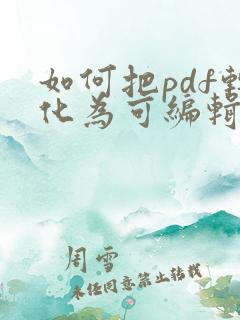 如何把pdf轉
化為可編輯
周雪
未经同意禁止转载